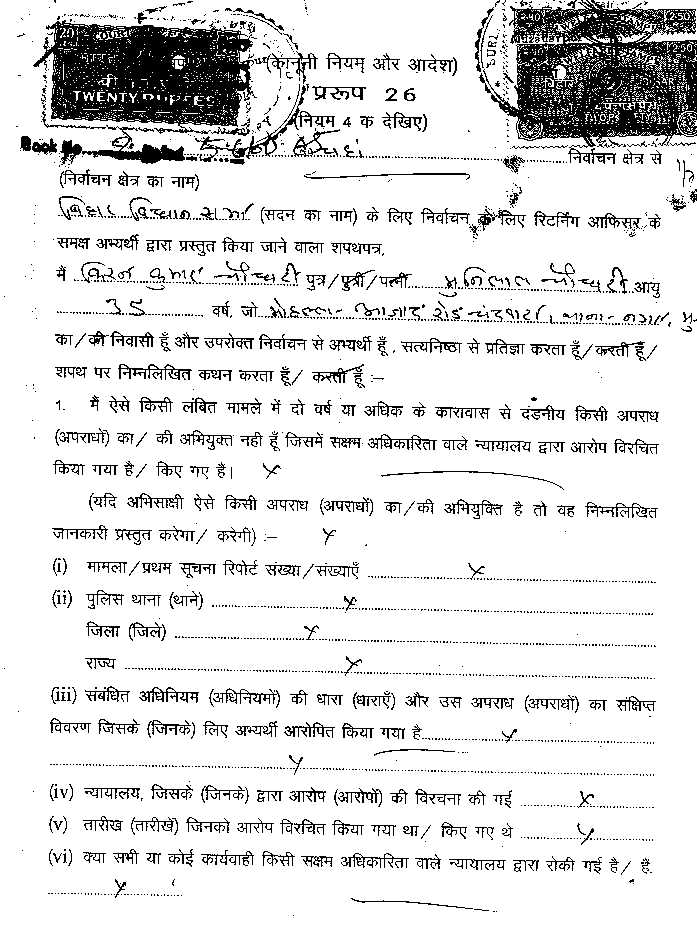 TWENTY RUPEES
(कानूनी नियम् और आदेश)
प्ररूप 26
(नियम 4 क देखिए)
Book No. निर्वाचन क्षेत्र से
(निर्वाचन क्षेत्र का नाम)
बिहार विधान सभा (सदन का नाम) के लिए निर्वाचन के लिए रिटर्निंग आफिसर के
समक्ष अभ्यर्थी द्वारा प्रस्तुत किया जाने वाला शपथपत्र,
मैं किरन कुमार चौधरी पुत्र/पुत्री/पत्नी मुनिलाल चौधरी आयु
35 वर्ष, जो मोहल्ला- आजाद रोड थाना- नगर,
का/की निवासी हूँ और उपरोक्त निर्वाचन से अभ्यर्थी हूँ, सत्यनिष्ठा से प्रतिज्ञा करता हूँ/करती हूँ/
शपथ पर निम्नलिखित कथन करता हूँ/ करती हूँ :–
1. मैं ऐसे किसी लंबित मामले में दो वर्ष या अधिक के कारावास से दंडनीय किसी अपराध
(अपराधों) का/ की अभियुक्त नही हूँ जिसमें सक्षम अधिकारिता वाले न्यायालय द्वारा आरोप विरचित
किया गया है/ किए गए है। X
(यदि अभिसाक्षी ऐसे किसी अपराध (अपराधों) का/की अभियुक्ति है तो वह निम्नलिखित
जानकारी प्रस्तुत करेगा/ करेगी) :– X
(i) मामला/प्रथम सूचना रिपोर्ट संख्या/संख्याएँ X
(ii) पुलिस थाना (थाने) X
जिला (जिले) X
राज्य X
(iii) संबंधित अधिनियम (अधिनियमों) की धारा (धाराएँ) और उस अपराध (अपराधों) का संक्षिप्त
विवरण जिसके (जिनके) लिए अभ्यर्थी आरोपित किया गया है X
X
(iv) न्यायालय, जिसके (जिनके) द्वारा आरोप (आरोपों) की विरचना की गई X
(v) तारीख (तारीखें) जिनको आरोप विरचित किया गया था/ किए गए थे X
(vi) क्या सभी या कोई कार्यवाही किसी सक्षम अधिकारिता वाले न्यायालय द्वारा रोकी गई है/ हैं.
X